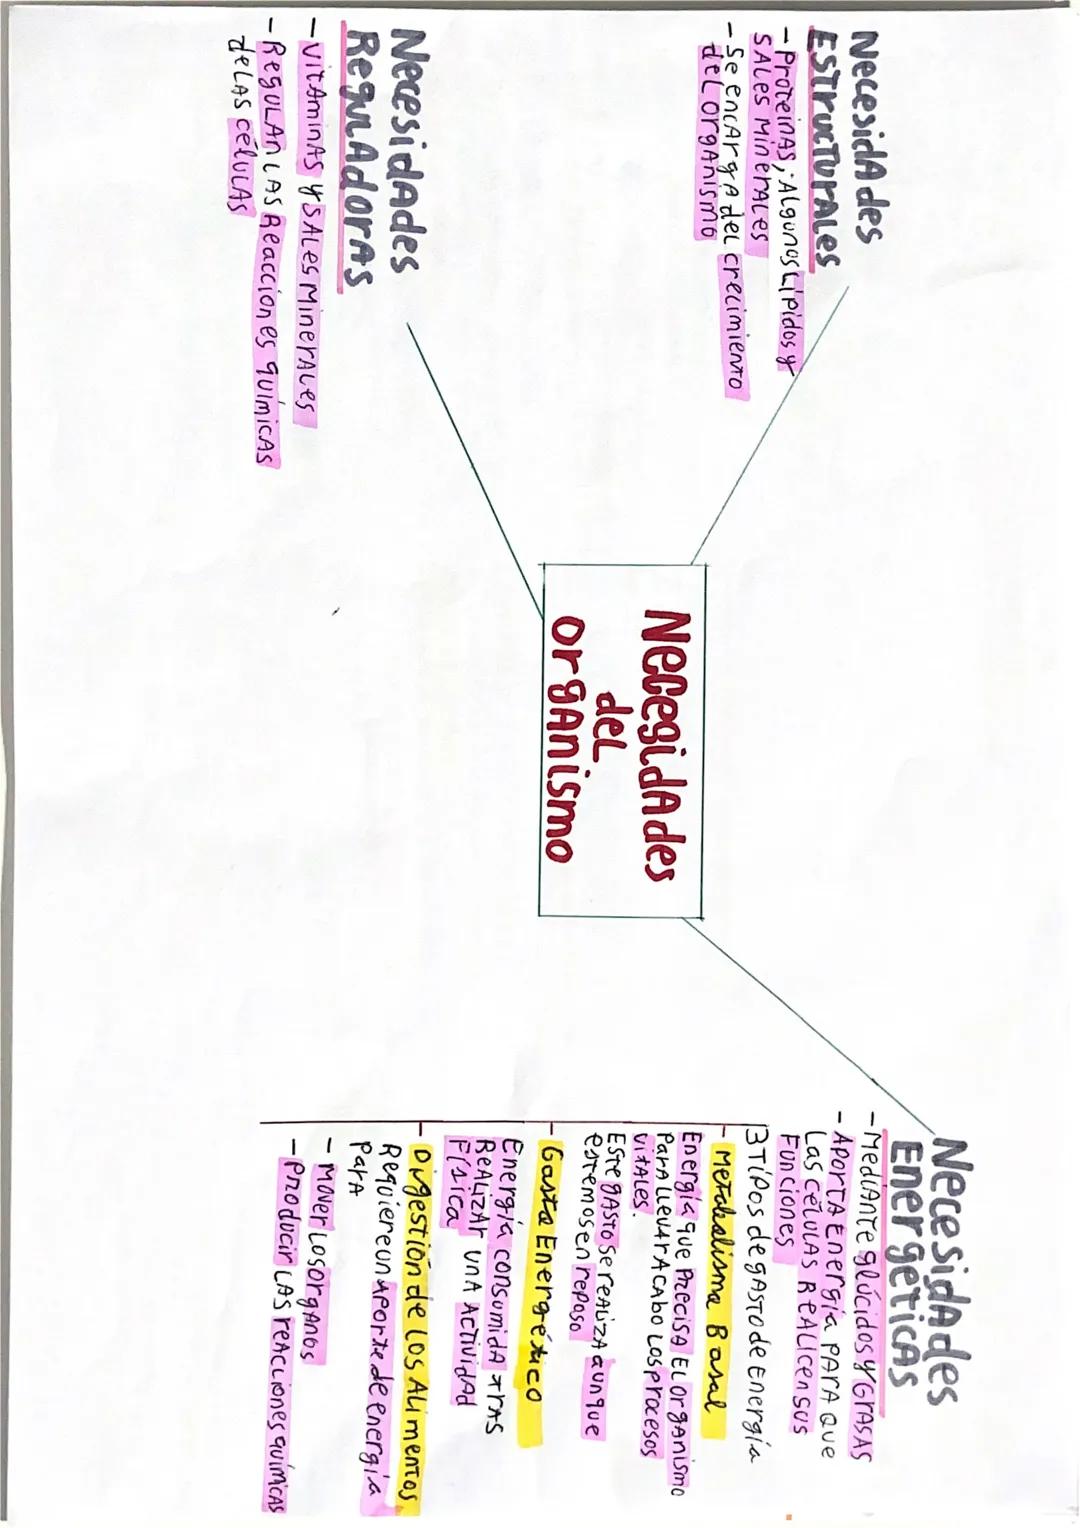 Necesidades
Estructurales
- Proteinas, Algunos Lípidos y
Sales Minerales
- Se encarga del crecimiento
del organismo
Necesidades
Reguladoras
- Vitaminas y Sales Minerales
- Regulan las Reacciones químicas
de las células
Necesidades
del
organismo
Necesidades
Energeticas
- Mediante glúcidos y Grasas
- Aporta Energía para que
Las células Realicen sus
Funciones
3 Tipos de gasto de Energía
- Metabolismo Basal
Energía que Precisa El organismo
Para llevar a cabo Los procesos
vitales.
Este gasto se realiza aunque
estemos en reposo
- Gasto Energético
Energía consumida tras
Realizar una Actividad
Física
- Digestión de los Alimentos
Requiere un aporte de energía
para
- Mover Los organos
- Producir las reacciones químicas